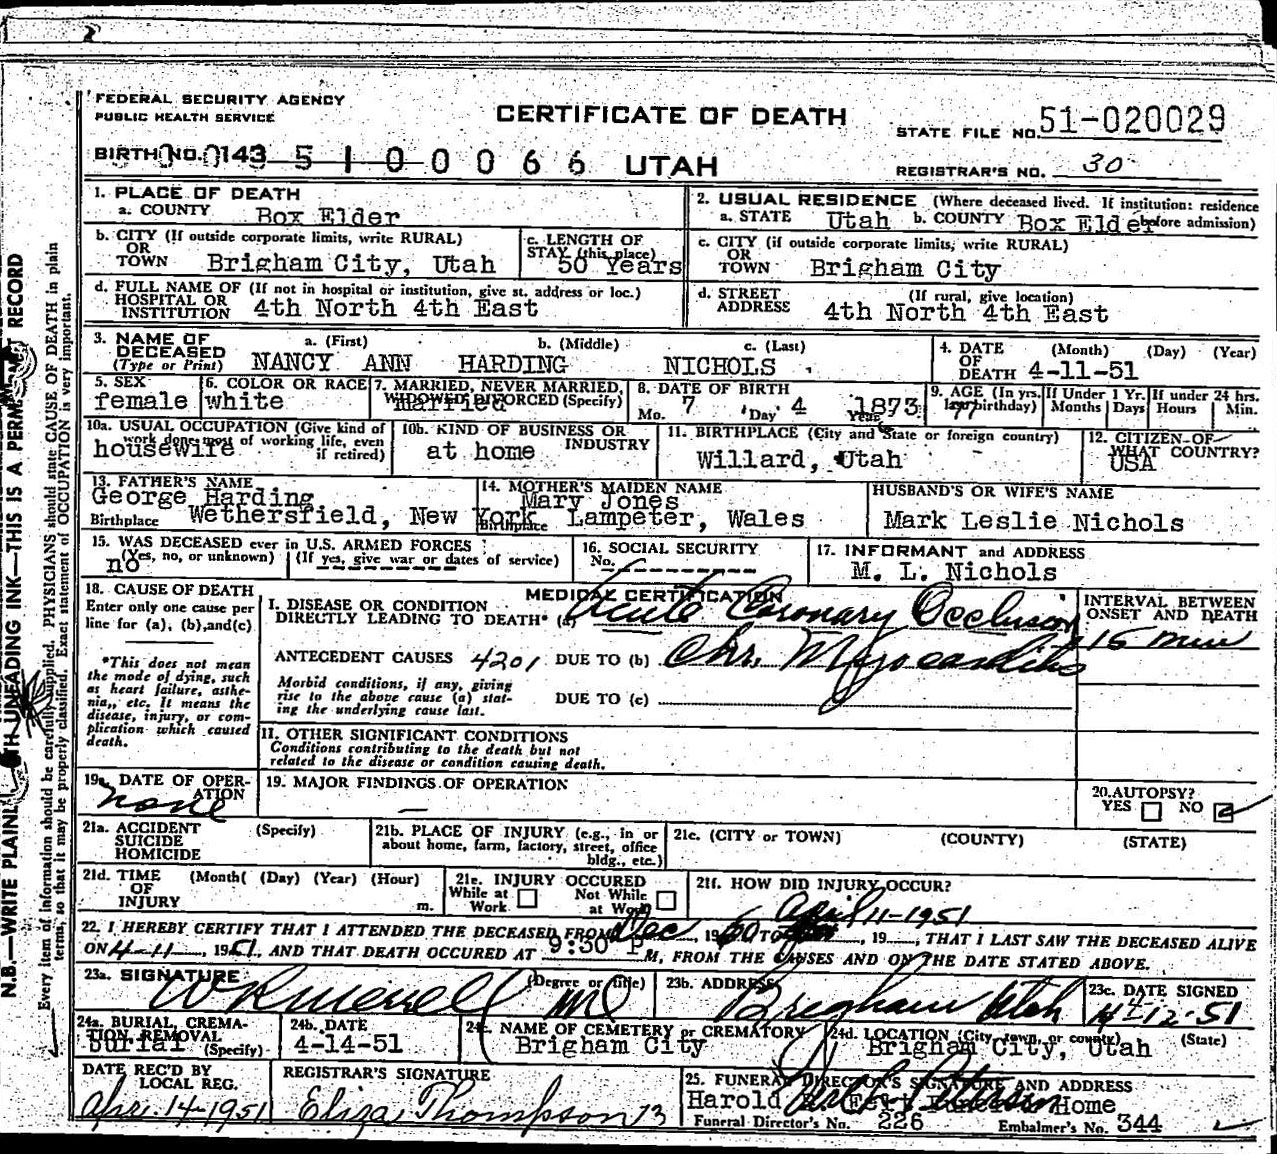 FEDERAL SECURITY AGENCY
PUBLIC HEALTH SERVICE
CERTIFICATE OF DEATH
STATE FILE NO. 51-020029
BIRTH NO. 0143 5 1 0 0 0 6 6 UTAH
REGISTRAR'S NO. 30
1. PLACE OF DEATH
a. COUNTY Box Elder
2. USUAL RESIDENCE (Where deceased lived. If institution: residence before admission)
a. STATE Utah b. COUNTY Box Elder
b. CITY (If outside corporate limits, write RURAL)
OR
TOWN Brigham City, Utah
c. LENGTH OF
STAY (this place)
50 Years
c. CITY (if outside corporate limits, write RURAL)
OR
TOWN Brigham City
d. FULL NAME OF (If not in hospital or institution, give st. address or loc.)
HOSPITAL OR
INSTITUTION 4th North 4th East
d. STREET (If rural, give location)
ADDRESS 4th North 4th East
3. NAME OF DECEASED (Type or Print)
a. (First) b. (Middle) c. (Last)
NANCY ANN HARDING NICHOLS
4. DATE (Month) (Day) (Year)
OF
DEATH 4-11-51
5. SEX
female
6. COLOR OR RACE
white
7. MARRIED, NEVER MARRIED,
WIDOWED DIVORCED (Specify)
married
8. DATE OF BIRTH
Mo. 7 Day 4 Year 1873
9. AGE (In yrs. last birthday) 77
If Under 1 Yr. Months Days
If under 24 hrs. Hours Min.
10a. USUAL OCCUPATION (Give kind of
work done most of working life, even
if retired)
housewife
10b. KIND OF BUSINESS OR
INDUSTRY
at home
11. BIRTHPLACE (City and State or foreign country)
Willard, Utah
12. CITIZEN OF
WHAT COUNTRY?
USA
13. FATHER'S NAME
George Harding
Birthplace Wethersfield, New York
14. MOTHER'S MAIDEN NAME
Mary Jones
Birthplace Lampeter, Wales
HUSBAND'S OR WIFE'S NAME
Mark Leslie Nichols
15. WAS DECEASED ever in U.S. ARMED FORCES
(Yes, no, or unknown) (If yes, give war or dates of service)
no
16. SOCIAL SECURITY
No.
17. INFORMANT and ADDRESS
M. L. Nichols
18. CAUSE OF DEATH
Enter only one cause per
line for (a), (b), and (c)
*This does not mean
the mode of dying, such
as heart failure, asthe-
nia, etc. It means the
disease, injury, or com-
plication which caused
death.
MEDICAL CERTIFICATION
I. DISEASE OR CONDITION
DIRECTLY LEADING TO DEATH* (a) Acute Coronary Occlusion
ANTECEDENT CAUSES 4201 DUE TO (b) Chr. Myocarditis
Morbid conditions, if any, giving
rise to the above cause (a) stat-
ing the underlying cause last.
DUE TO (c)
INTERVAL BETWEEN
ONSET AND DEATH
15 min
II. OTHER SIGNIFICANT CONDITIONS
Conditions contributing to the death but not
related to the disease or condition causing death.
19a. DATE OF OPER-
ATION
none
19. MAJOR FINDINGS OF OPERATION
—
20. AUTOPSY?
YES NO
21a. ACCIDENT (Specify)
SUICIDE
HOMICIDE
21b. PLACE OF INJURY (e.g., in or
about home, farm, factory, street, office
bldg., etc.)
21c. (CITY or TOWN) (COUNTY) (STATE)
21d. TIME (Month) (Day) (Year) (Hour)
OF
INJURY m.
21e. INJURY OCCURED
While at Work Not While at Work
21f. HOW DID INJURY OCCUR?
April 11-1951
22. I HEREBY CERTIFY THAT I ATTENDED THE DECEASED FROM Dec, 1950 TO , 19 , THAT I LAST SAW THE DECEASED ALIVE
ON 4-11, 1951, AND THAT DEATH OCCURED AT 9:30 P M, FROM THE CAUSES AND ON THE DATE STATED ABOVE.
23a. SIGNATURE (Degree or title)
MD
23b. ADDRESS
Brigham Utah
23c. DATE SIGNED
4-12-51
24a. BURIAL, CREMA-
TION, REMOVAL
(Specify)
burial
24b. DATE
4-14-51
24c. NAME OF CEMETERY or CREMATORY
Brigham City
24d. LOCATION (City, town, or county) (State)
Brigham City, Utah
DATE REC'D BY
LOCAL REG.
Apr. 14-1951
REGISTRAR'S SIGNATURE
Eliza Thompson 13
25. FUNERAL DIRECTOR'S SIGNATURE AND ADDRESS
Harold Home
Funeral Director's No. 226 Embalmer's No. 344
N.B.—WRITE PLAINLY WITH UNFADING INK—THIS IS A PERMANENT RECORD
Every item of information should be carefully supplied. PHYSICIANS should state CAUSE OF DEATH in plain
terms, so that it may be properly classified. Exact statement of OCCUPATION is very important.